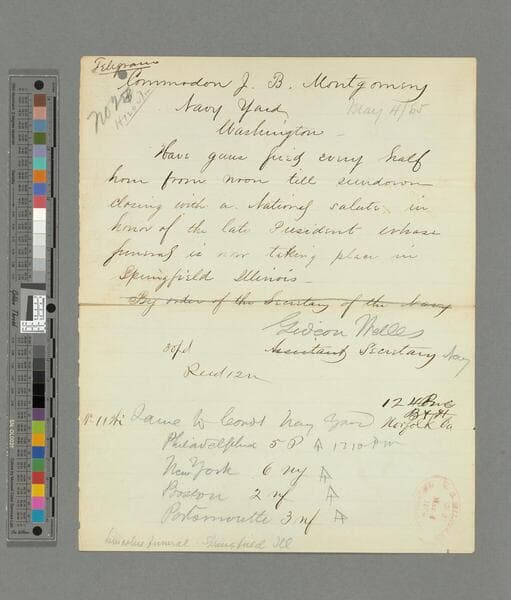 Telegram
Commodore J. B. Montgomery
Navy Yard
May 4/65
Washington
Have guns fired every half
hour from noon till sundown
closing with a National salute in
honor of the late President whose
funeral is now taking place in
Springfield Illinois
By order of the Secretary of the Navy
Gideon Welles
Assistant Secretary Navy
Recd 12 m
Same to Comdt Navy Yard
Norfolk Va
Philadelphia 5 P 1210 Pm
New York 6 ny
Boston 2 ny
Portsmouth 3 ny
Lincoln's funeral Springfield Ill